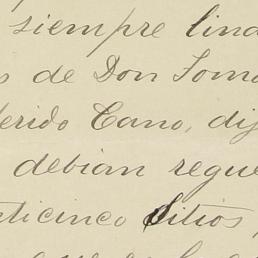 siempre lind
s de Don Tomá
derido Cano, dij
debian regue
ticinco sitios,